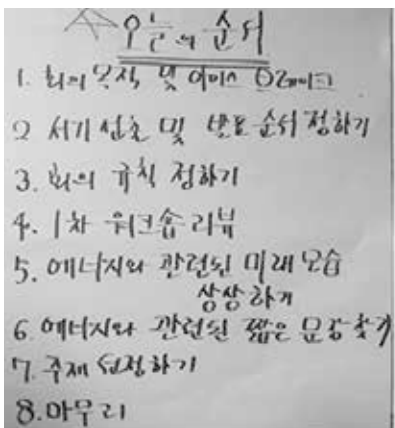 오늘의 순서
1. 회의 목적 및 아이스 브레이크
2 서기 선출 및 발표 순서 정하기
3. 회의 규칙 정하기
4. 1차 워크숍 리뷰
5. 에너지와 관련된 미래 모습
상상하기
6. 에너지와 관련된 짧은 문장 찾기
7. 주제 선정하기
8. 마무리